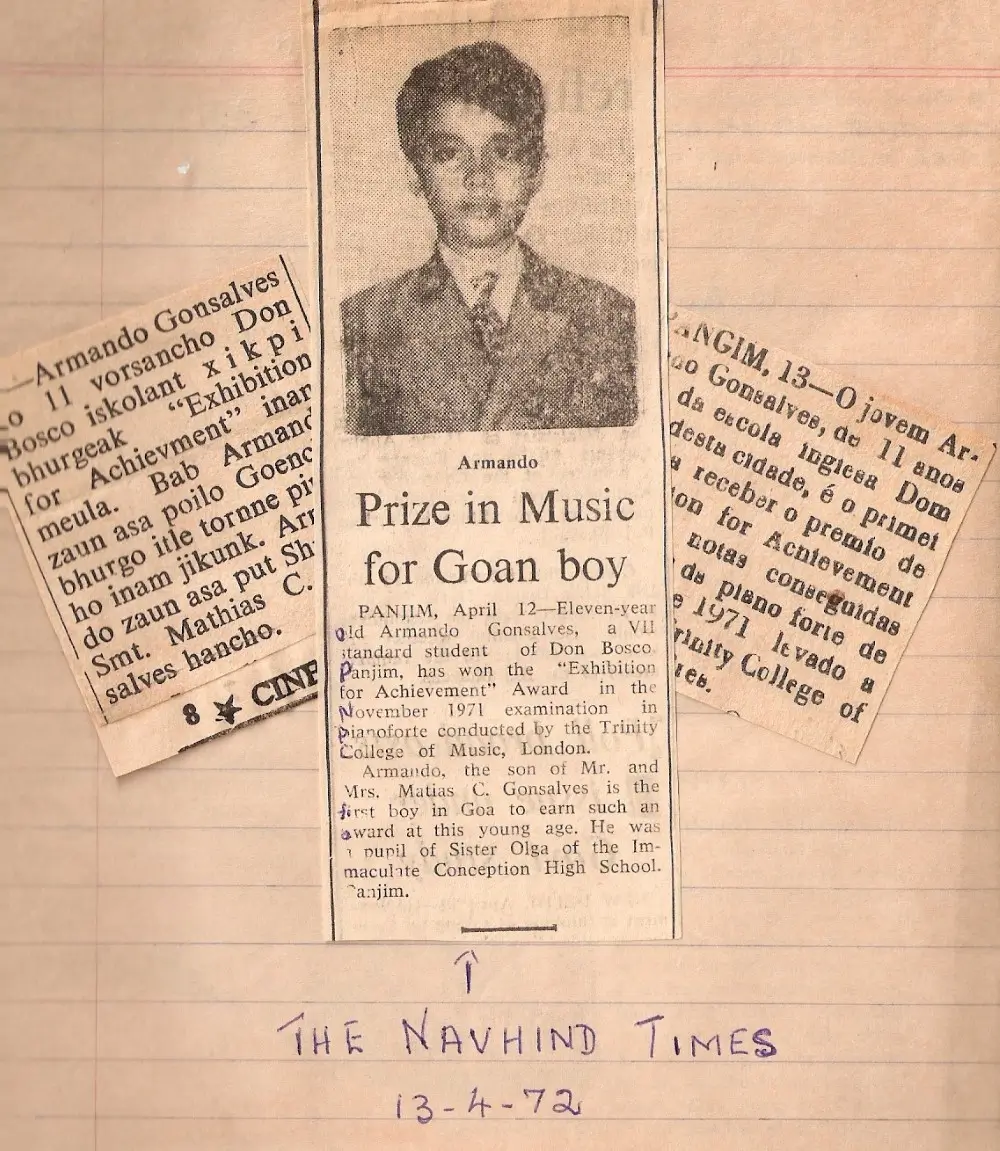 —Armando Gonsalves
o 11 vorsancho Don
Bosco iskolant xikpi
bhurgeak "Exhibition
for Achievment" inam
meula. Bab Armand
zaun asa poilo Goenc
bhurgo itle tornne pi
ho inam jikunk. Ar
do zaun asa put Sh
Smt. Mathias C.
salves hancho.
8 ★ CINE
Armando
Prize in Music
for Goan boy
PANJIM, April 12—Eleven-year
old Armando Gonsalves, a VII
standard student of Don Bosco
Panjim, has won the "Exhibition
for Achievement" Award in the
November 1971 examination in
pianoforte conducted by the Trinity
College of Music, London.
Armando, the son of Mr. and
Mrs. Matias C. Gonsalves is the
first boy in Goa to earn such an
award at this young age. He was
a pupil of Sister Olga of the Im-
maculate Conception High School.
Panjim.
PANGIM, 13—O jovem Ar-
do Gonsalves, de 11 anos
da escola inglesa Dom
desta cidade, é o primei
a receber o premio de
on for Achievement
notas conseguidas
de piano forte de
e 1971 levado a
Trinity College of
↑
THE NAVHIND TIMES
13-4-72